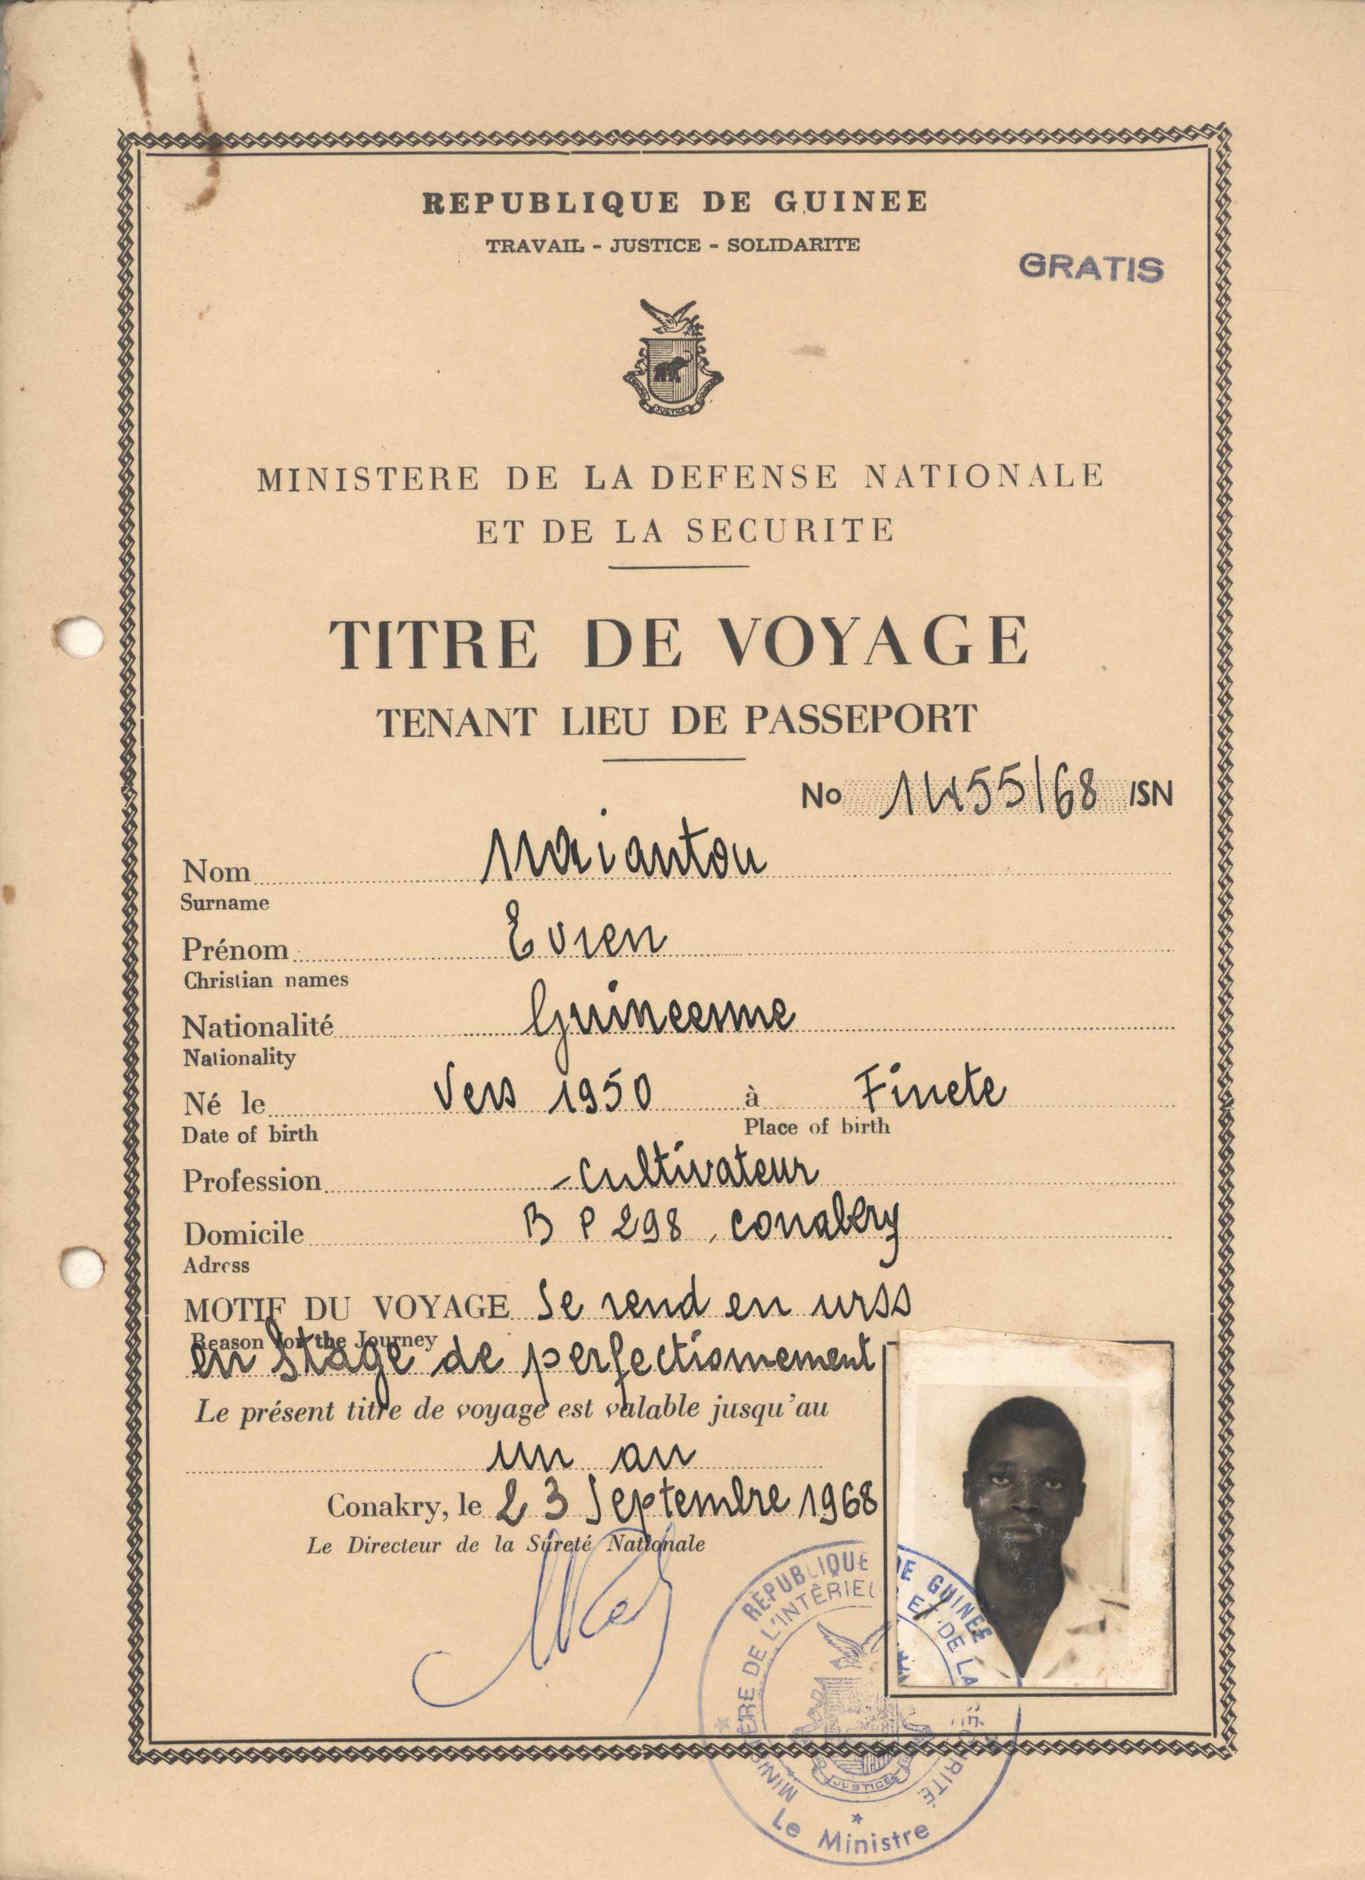 REPUBLIQUE DE GUINEE
TRAVAIL - JUSTICE - SOLIDARITE
GRATIS
MINISTERE DE LA DEFENSE NATIONALE
ET DE LA SECURITE
TITRE DE VOYAGE
TENANT LIEU DE PASSEPORT
No 1455/68 /SN
Nom
Surname
Prénom
Christian names
Nationalité Guineenne
Nationality
Né le Vers 1950 à Finete
Date of birth Place of birth
Profession -cultivateur
Domicile B P 298, conakry
Adress
MOTIF DU VOYAGE Se rend en urss
Reason for the Journey
en stage de perfectionnement
Le présent titre de voyage est valable jusqu'au
un an
Conakry, le 23 Septembre 1968
Le Directeur de la Sûreté Nationale
REPUBLIQUE DE GUINEE
MINISTÈRE DE L'INTÉRIEUR ET DE LA SÉCURITÉ
JUSTICE
Le Ministre